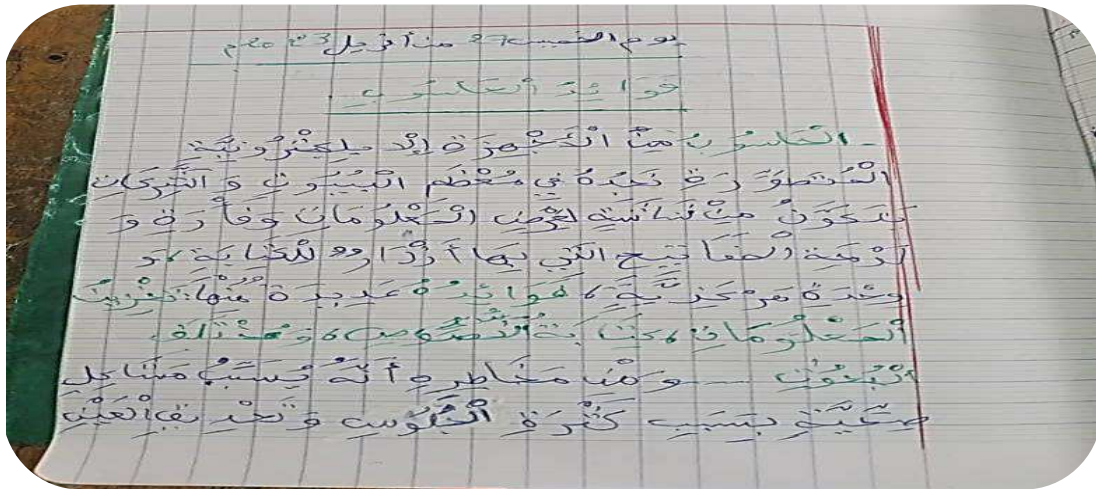 يوم الخميس 27 من أفريل 2023م
فوائد الحاسوب
- الحاسوب من الأجهزة الإلكترونية
المتطورة نجده في معظم البيوت و الشركات
يتكون من شاشة لعرض المعلومات وفأرة و
لوحة المفاتيح التي بها أزرار للكتابة، و
وحدة مركزية، فوائده عديدة منها: تخزين
المعلومات، كتابة النصوص، ومختلف
البحوث و من مخاطره أنه يسبب مشاكل
صحية بسبب كثرة الجلوس و تحديق العين